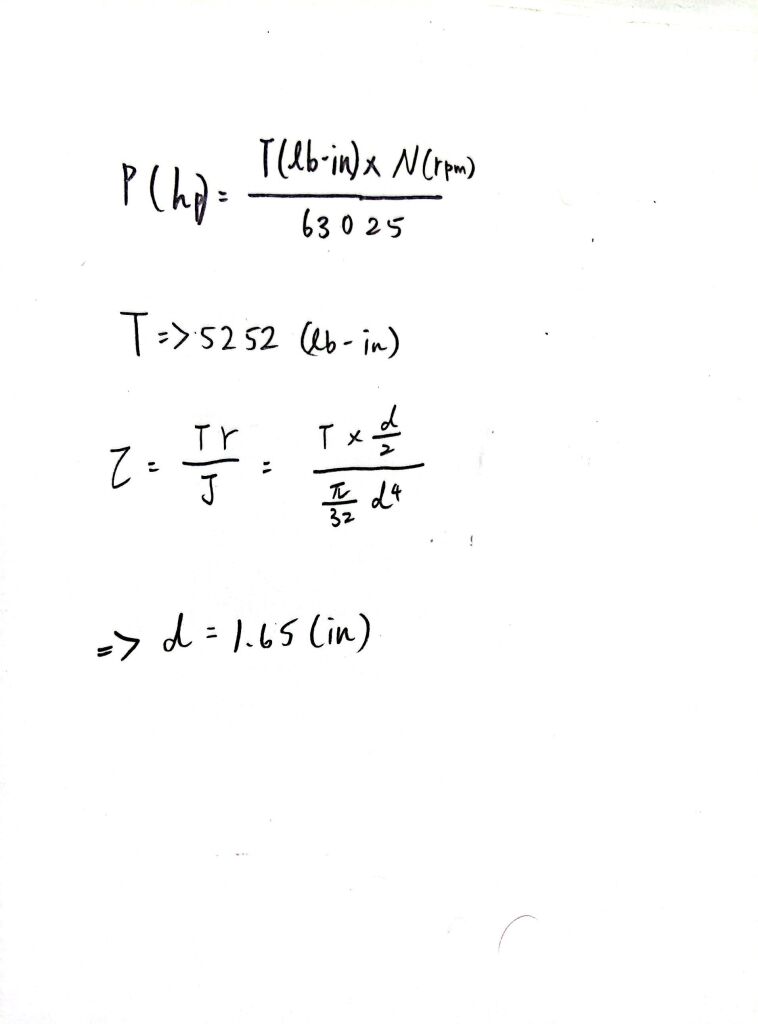 P(hp) = T(lb-in) x N(rpm) / 63025
T => 5252 (lb-in)
τ = Tr / J = T x d/2 / π/32 d⁴
=> d = 1.65 (in)